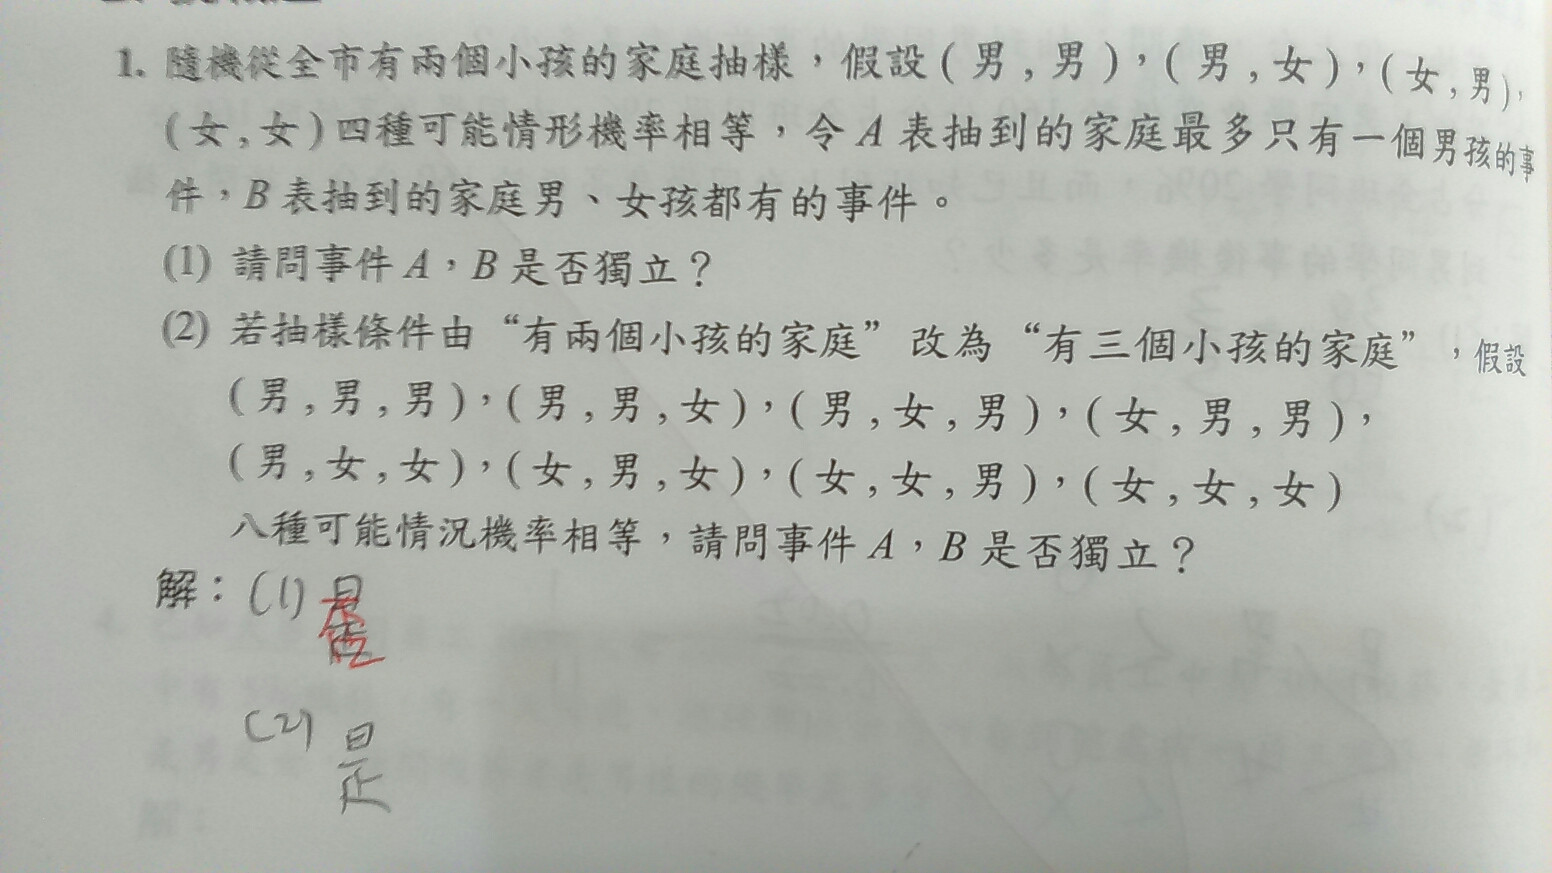 1. 隨機從全市有兩個小孩的家庭抽樣，假設(男,男)，(男,女)，(女,男)，
(女,女)四種可能情形機率相等，令A表抽到的家庭最多只有一個男孩的事
件，B表抽到的家庭男、女孩都有的事件。
(1) 請問事件A，B是否獨立？
(2) 若抽樣條件由“有兩個小孩的家庭”改為“有三個小孩的家庭”，假設
(男,男,男)，(男,男,女)，(男,女,男)，(女,男,男)，
(男,女,女)，(女,男,女)，(女,女,男)，(女,女,女)
八種可能情況機率相等，請問事件A，B是否獨立？
解：(1)
(2) 是